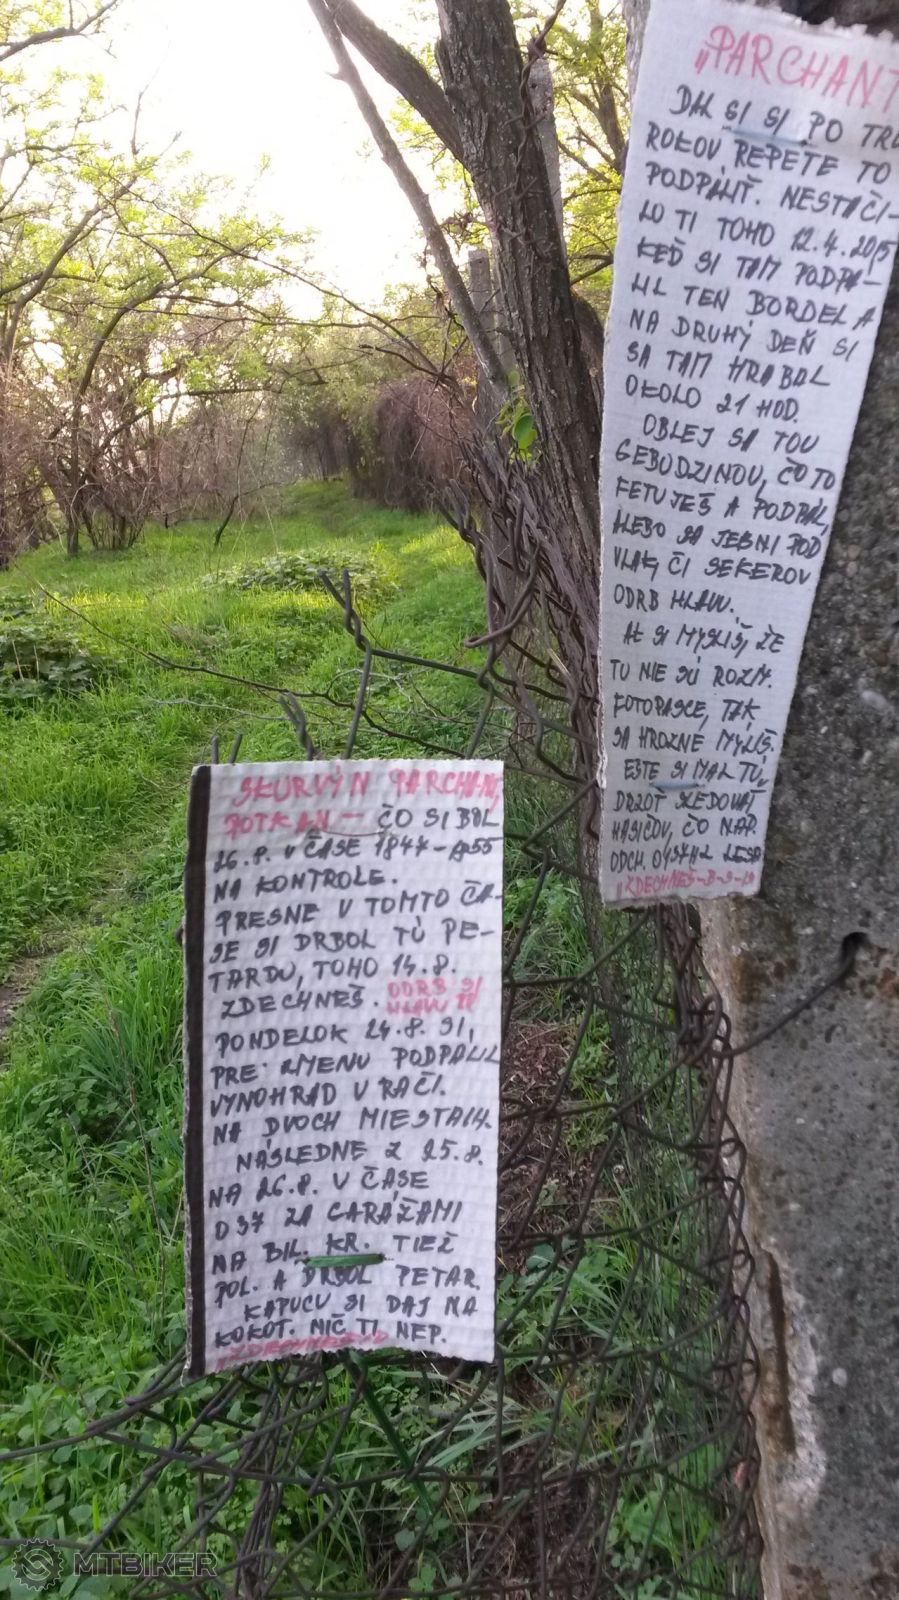 SKURVÝN PARCHANT,
POTKAN — ČO SI BOL
26.8. V ČASE 1847-
NA KONTROLE.
PRESNE V TOMTO ČA-
SE SI DRBOL TÚ PE-
TARDU, TOHO 14.8.
ZDECHNEŠ. ODRB SI
HLAVU !!
PONDELOK 24.8. SI,
PRE ZMENU PODPÁLIL
VYNOHRAD V RAČI.
NA DVOCH MIESTACH.
NÁSLEDNE Z 25.8.
NA 26.8. V ČASE
037 ZA GARÁŽAMI
NA BIL. KR. TIEŽ
POL. A DRBOL PETAR.
KAPUCU SI DAJ NA
KOKOT. NIČ TI NEP.
„ZDECHNEŠ"
„PARCHANT
DAL SI SI PO TRO
ROKOV REPETE TO
PODPÁLIŤ. NESTAČI-
LO TI TOHO 12.4.2015
KEĎ SI TAM PODPÁ-
LIL TEN BORDEL A
NA DRUHÝ DEŇ SI
SA TAM HRABAL
OKOLO 21 HOD.
OBLEJ SA TOU
GEBUDZINOU, ČO TO
FETUJEŠ A PODPÁL,
ALEBO SA JEBNI POD
VLAK, ČI SEKEROV
ODRB HLAVU.
AK SI MYSLÍŠ, ŽE
TU NIE SÚ ROZM.
FOTOPASCE, TAK
SA HROZNE MÝLIŠ.
EŠTE SI MAL TÚ
DRZOŤ SLEDOVAŤ
HASIČOV, ČO NAP.
ODCH. Z LESA
„ZDECHNEŠ
MTBIKER